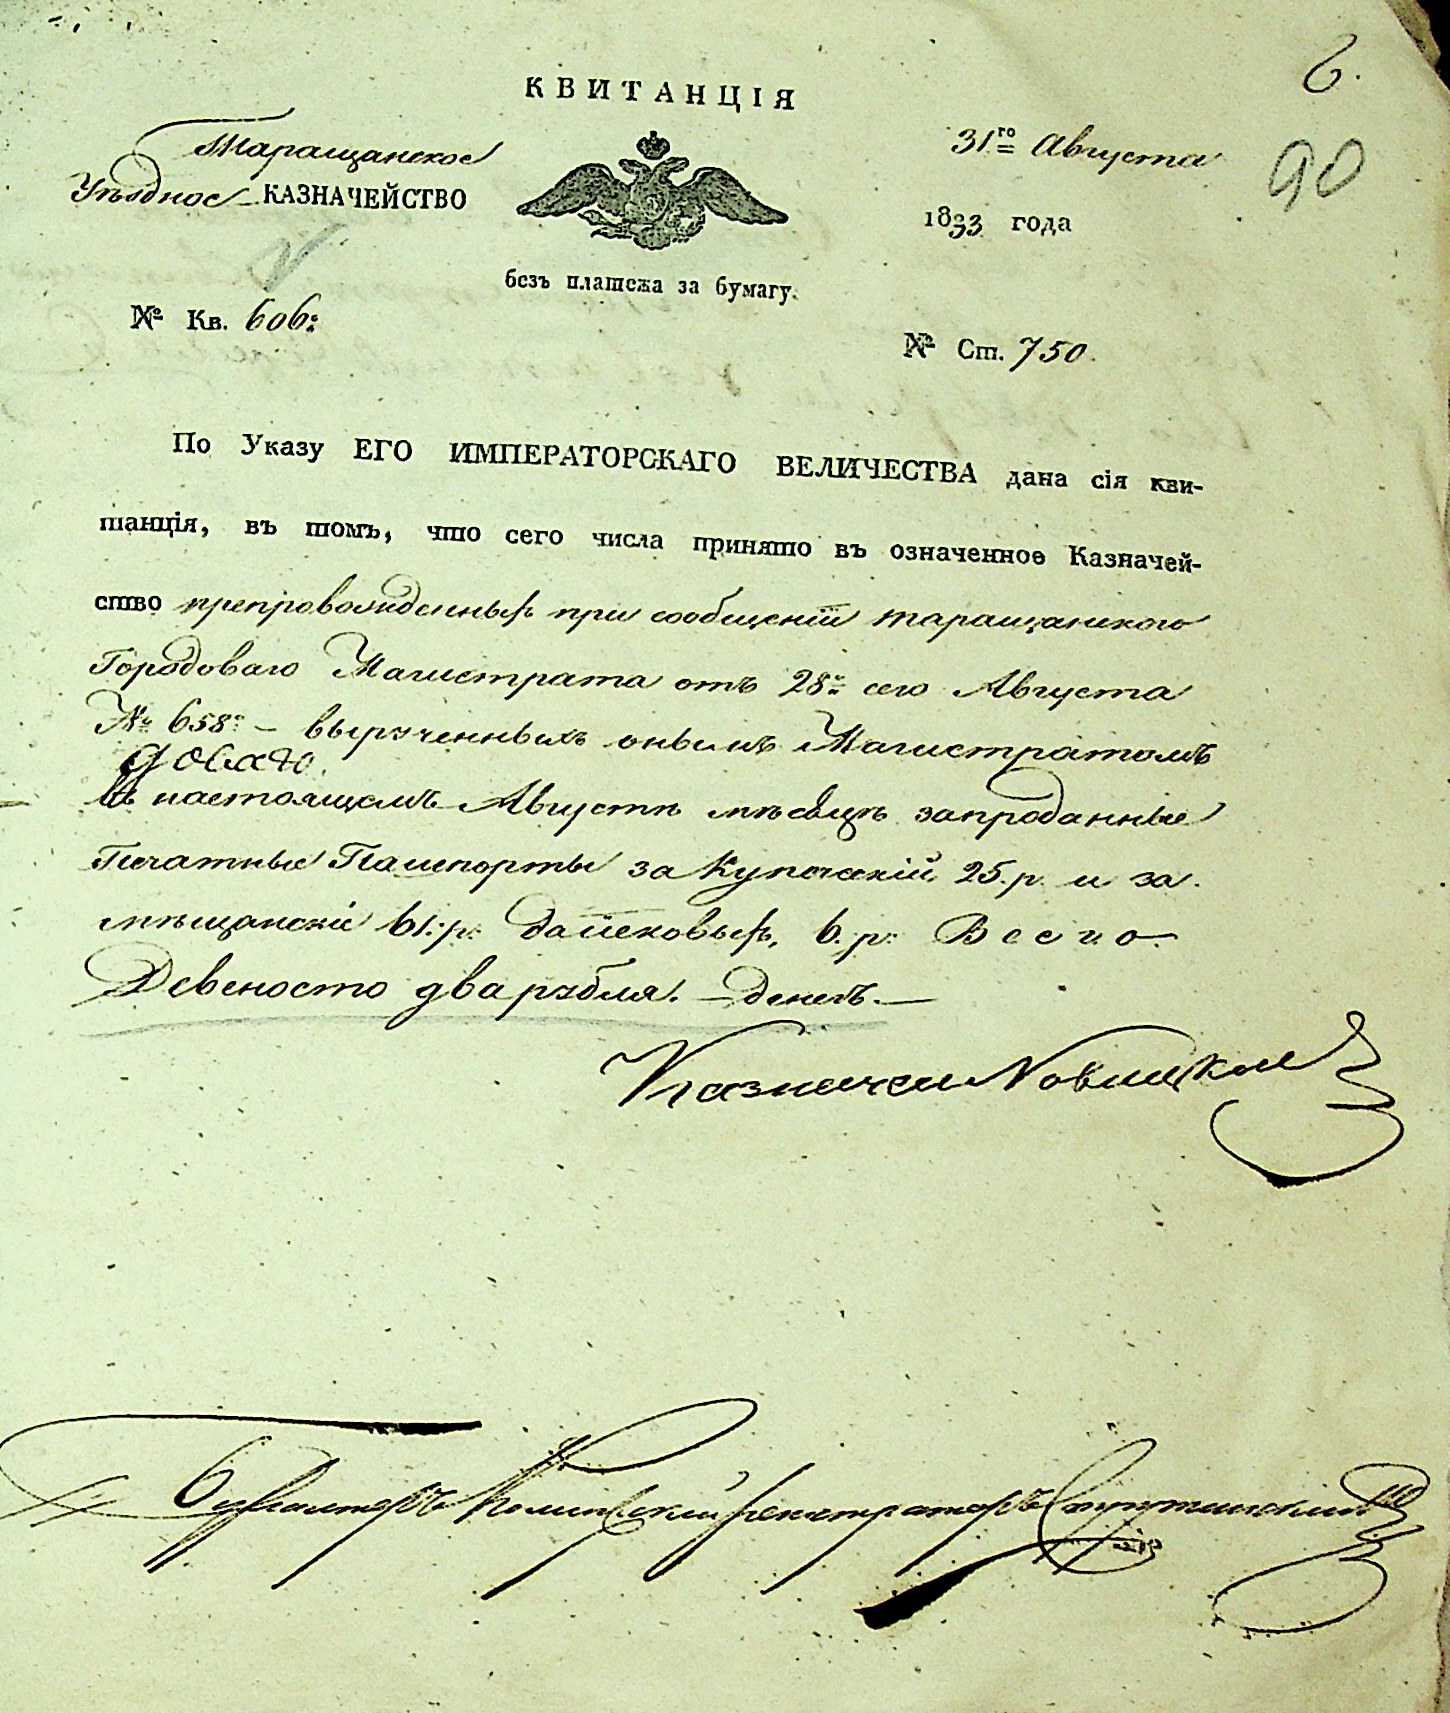 КВИТАНЦІЯ
6.
90
Таращанское
Уѣздное КАЗНАЧЕЙСТВО
31го Августа
1833 года
безъ платежа за бумагу.
№ Кв. 606.
№ Ст. 750.
По Указу ЕГО ИМПЕРАТОРСКАГО ВЕЛИЧЕСТВА дана сія кви-
танція, въ томъ, что сего числа принято въ означенное Казначей-
ство препровожденныя при сообщеніи таращанского
Городоваго Магистрата отъ 28го сего Августа
№ 658 – вырученныхъ онымъ Магистратомъ
въ настоящемъ Августѣ мѣсяцѣ запроданные
Печатные Пашпорты за Купеческій 25. р. и за
мѣщанскіе 61. р. 6. р. Всего
Девеносто два рубля. – денегъ. –
Казначей Новицкій
Бухгалтеръ Регистраторъ